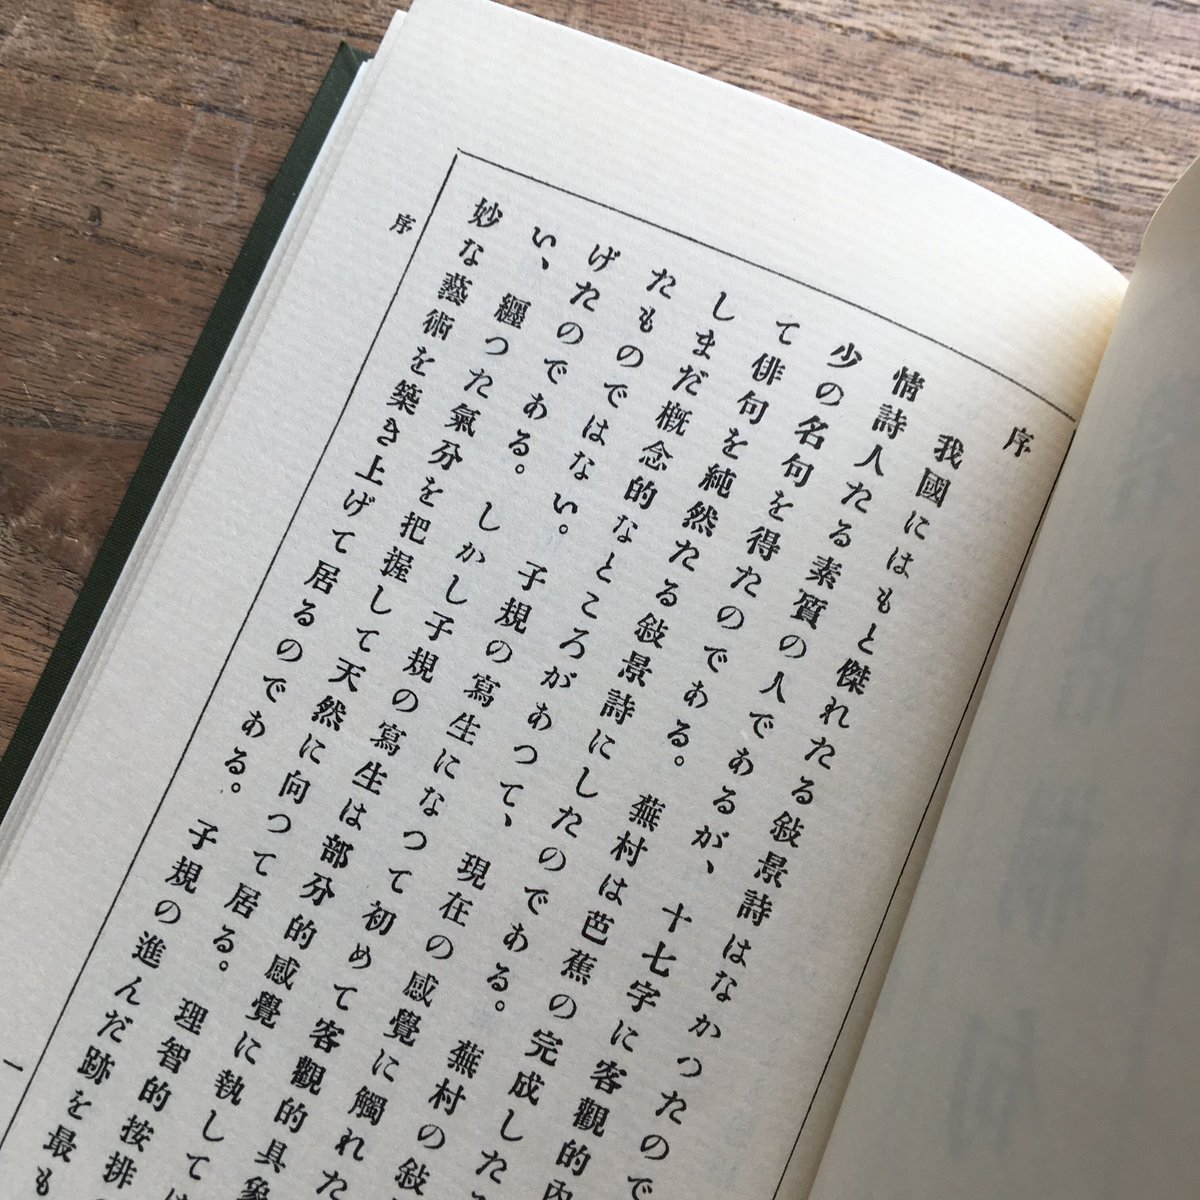 序
我國にはもと傑れたる敍景詩はなかつたので
情詩人たる素質の人であるが、十七字に客觀的內
少の名句を得たのである。蕪村は芭蕉の完成した
て俳句を純然たる敍景詩にしたのである。蕪村の敍
しまだ概念的なところがあつて、現在の感覺に觸れた
たものではない。子規の寫生になつて初めて客觀的具象
げたのである。しかし子規の寫生は部分的感覺に執しては
い、纒つた氣分を把握して天然に向つて居る。理智的按排
妙な藝術を築き上げて居るのである。子規の進んだ跡を最も
序
一